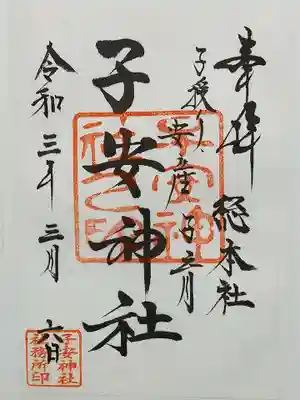 奉拝 総本社
子授け 安産
子安神社
令和三年三月六日
子安神社
社務所印